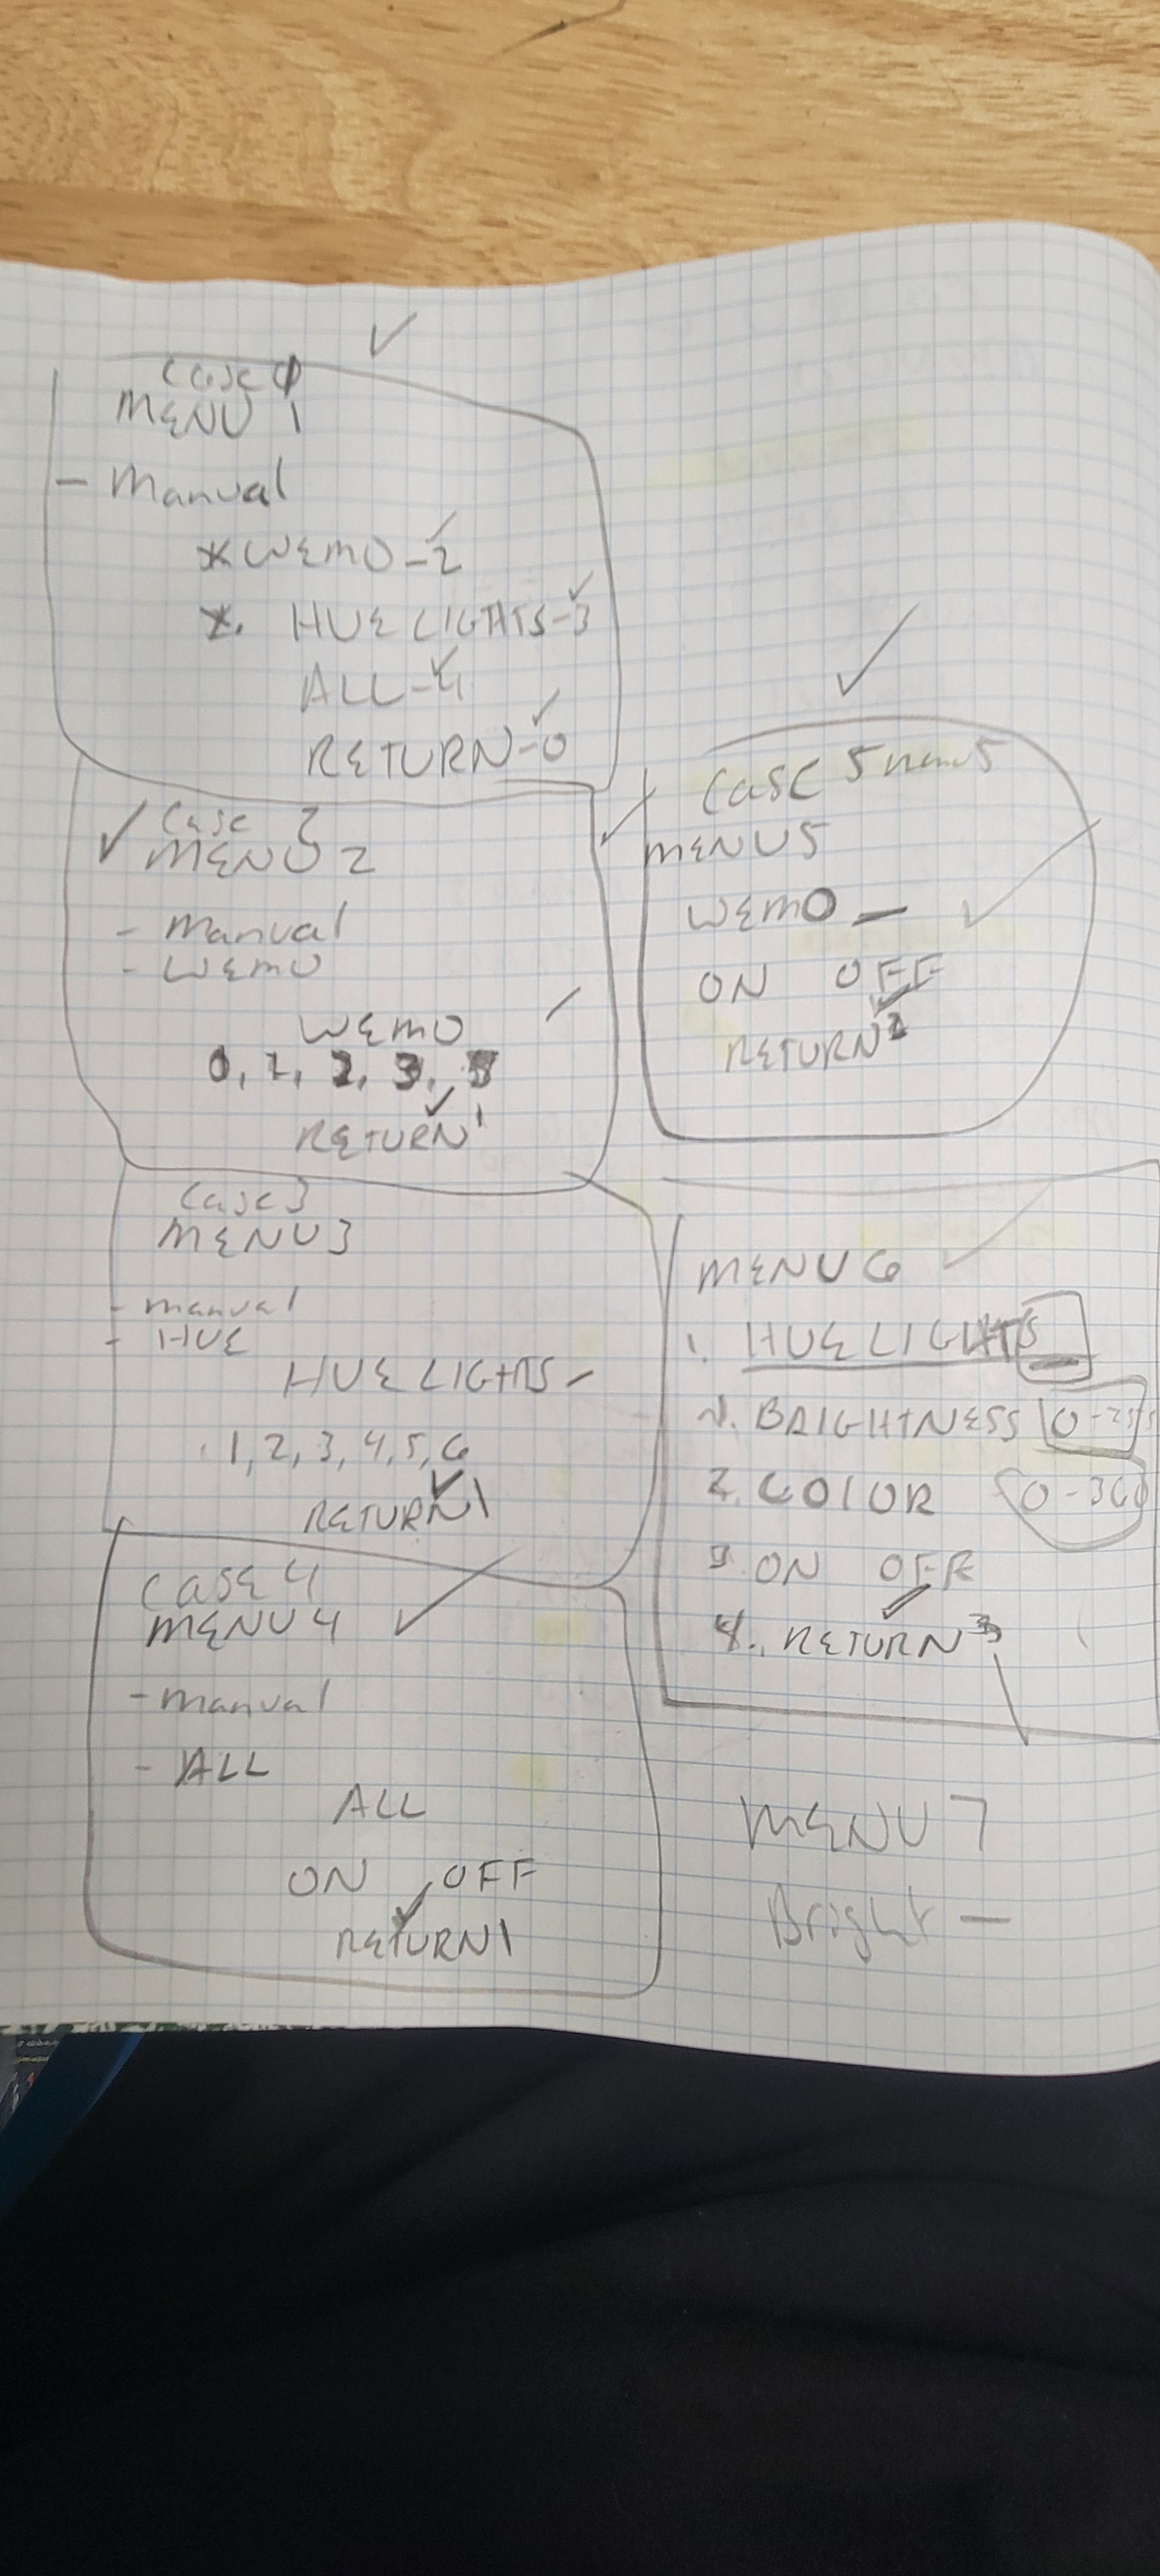 MENU 1
- Manual
* WEMO - 2
*. HUE LIGHTS - 3
ALL - 4
RETURN - 0
Case 2
MENU 2
- Manual
- WEMO
WEMO
0, 1, 2, 3,
RETURN 1
Case 3
MENU 3
- manual
- HUE
HUE LIGHTS -
1, 2, 3, 4, 5, 6
RETURN 1
CASE 4
MENU 4
- manual
- ALL
ALL
ON OFF
RETURN 1
CASE 5 menu 5
MENU 5
WEMO —
ON OFF
RETURN 2
MENU 6
1. HUE LIGHTS
BRIGHTNESS 0-255
2. COLOR 0-360
3. ON OFF
4. RETURN 3
MENU 7
Bright —